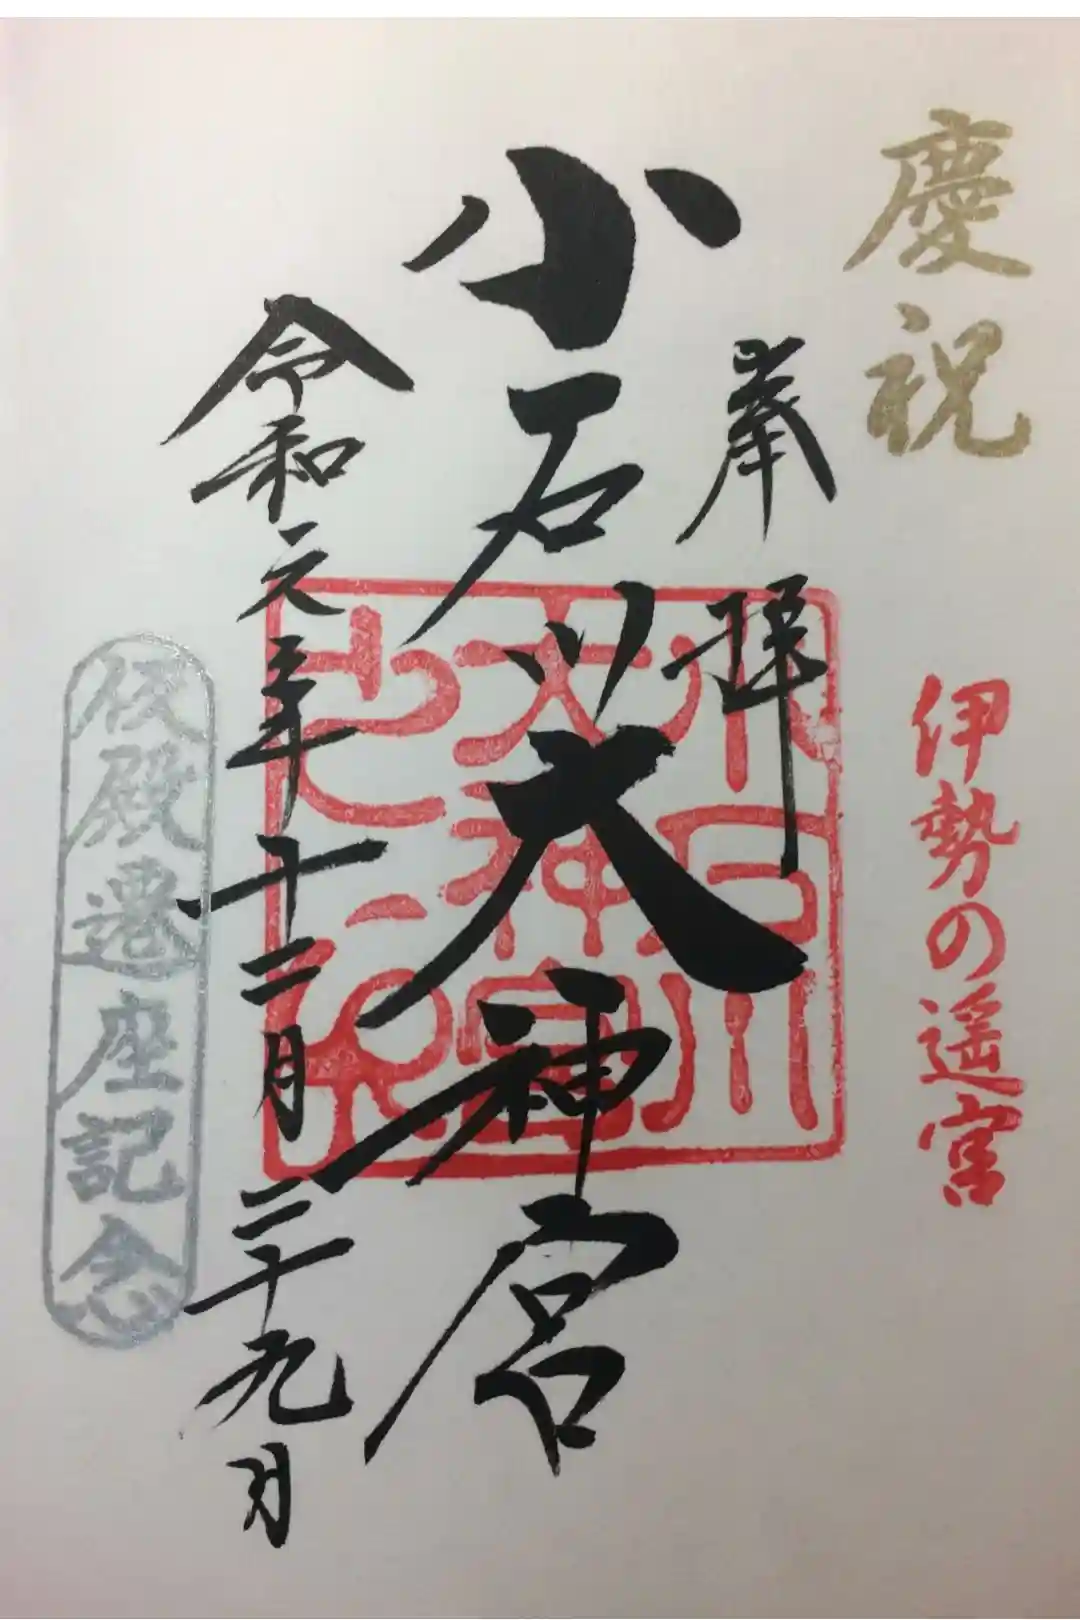 慶祝
伊勢の遥宮
奉拝
小石川大神宮
小石川大神宮之印
令和元年十二月二十九日
仮殿遷座記念